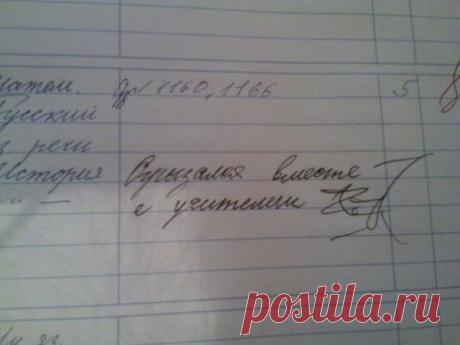 Матем. № 1160, 1166 5
Русский
р. речи
История Огрызался вместе
" — с учителем
Ин. яз.
postila.ru